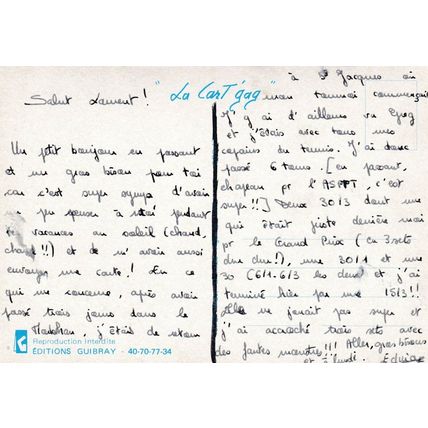 " La Cart'gag "
Salut Laurent !
Un petit bonjour en passant
et un gros bisou pour toi
car c'est super sympa d'avoir
pu penser à moi pendant
tes vacances au soleil (chaud,
chaud !!) et de m'avoir aussi
envoyé une carte ! En ce
qui me concerne, après avoir
passé trois jours dans le
Morbihan, j'étais de retour
à St Jacques où
mon tournoi commençait
J'y ai d'ailleurs vu Greg
et j'étais avec tous mes
copains du tennis. J'ai donc
passé 6 tours. [en passant,
chapeau pr l'ASPTT, c'est
super !!] Deux 30/3 dont une
qui était juste derrière moi
pr le Grand Prix (en 3 sets
dur dur !), une 30/1 et une
30 (6/1. 6/3 les deux) et j'ai
terminé hier par une 15/3 !!
Elle ne jouait pas super et
j'ai accroché trois sets avec
des fautes monstres !!! Allez, gros bisous
et à lundi.
Reproduction interdite
ÉDITIONS GUIBRAY - 40-70-77-34